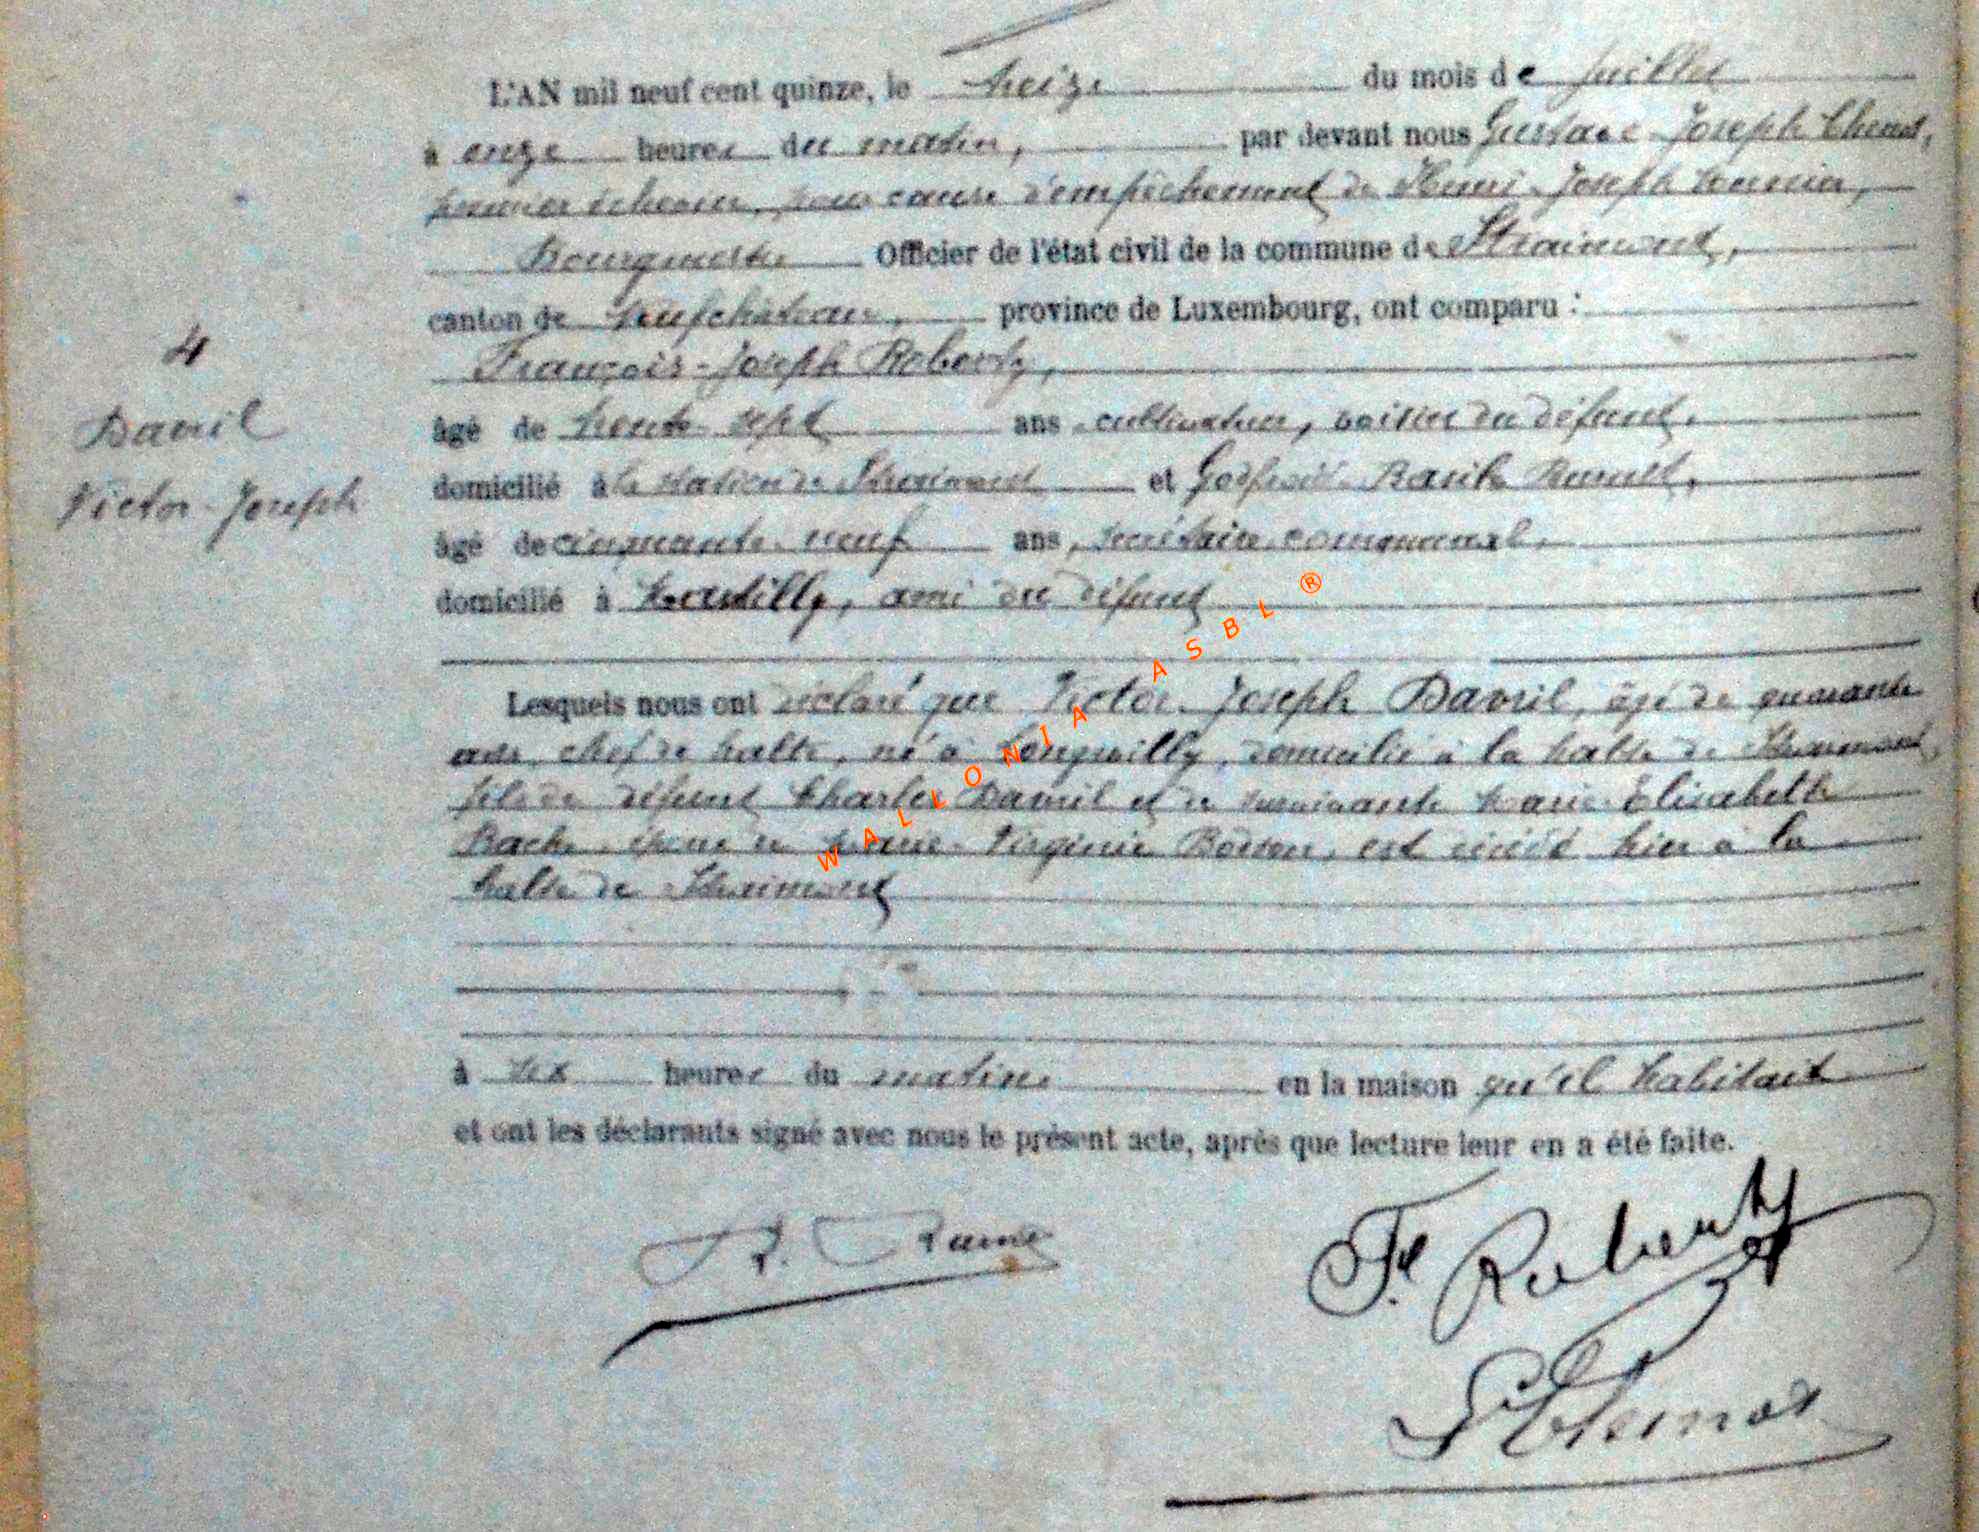 L'AN mil neuf cent quinze, le treize du mois de juillet
à onze heures du matin, par devant nous Gustave Joseph Chenot,
premier échevin, pour cause d'empêchement de Henri-Joseph
Bourgmestre Officier de l'état civil de la commune de Straimont,
canton de Neufchâteau, province de Luxembourg, ont comparu :
François-Joseph Roberty,
4
âgé de trente-sept ans cultivateur, voisin du défunt,
Davril
domicilié à la station de Straimont et Godfroid
Victor-Joseph
âgé de cinquante-neuf ans, secrétaire communal,
domicilié à Martilly, ami du défunt
WALLONIA ASBL ®
Lesquels nous ont déclaré que Victor-Joseph Davril, âgé de quarante
ans, chef de halte, né à Longvilly, domicilié à la halte de Straimont,
fils de défunt Charles Davril et de survivante Marie-Elisabeth
époux de Marie-Virginie est décédé hier à la
halte de Straimont
à six heures du matin en la maison qu'il habitait
et ont les déclarants signé avec nous le présent acte, après que lecture leur en a été faite.
F. Roberty
Chenot